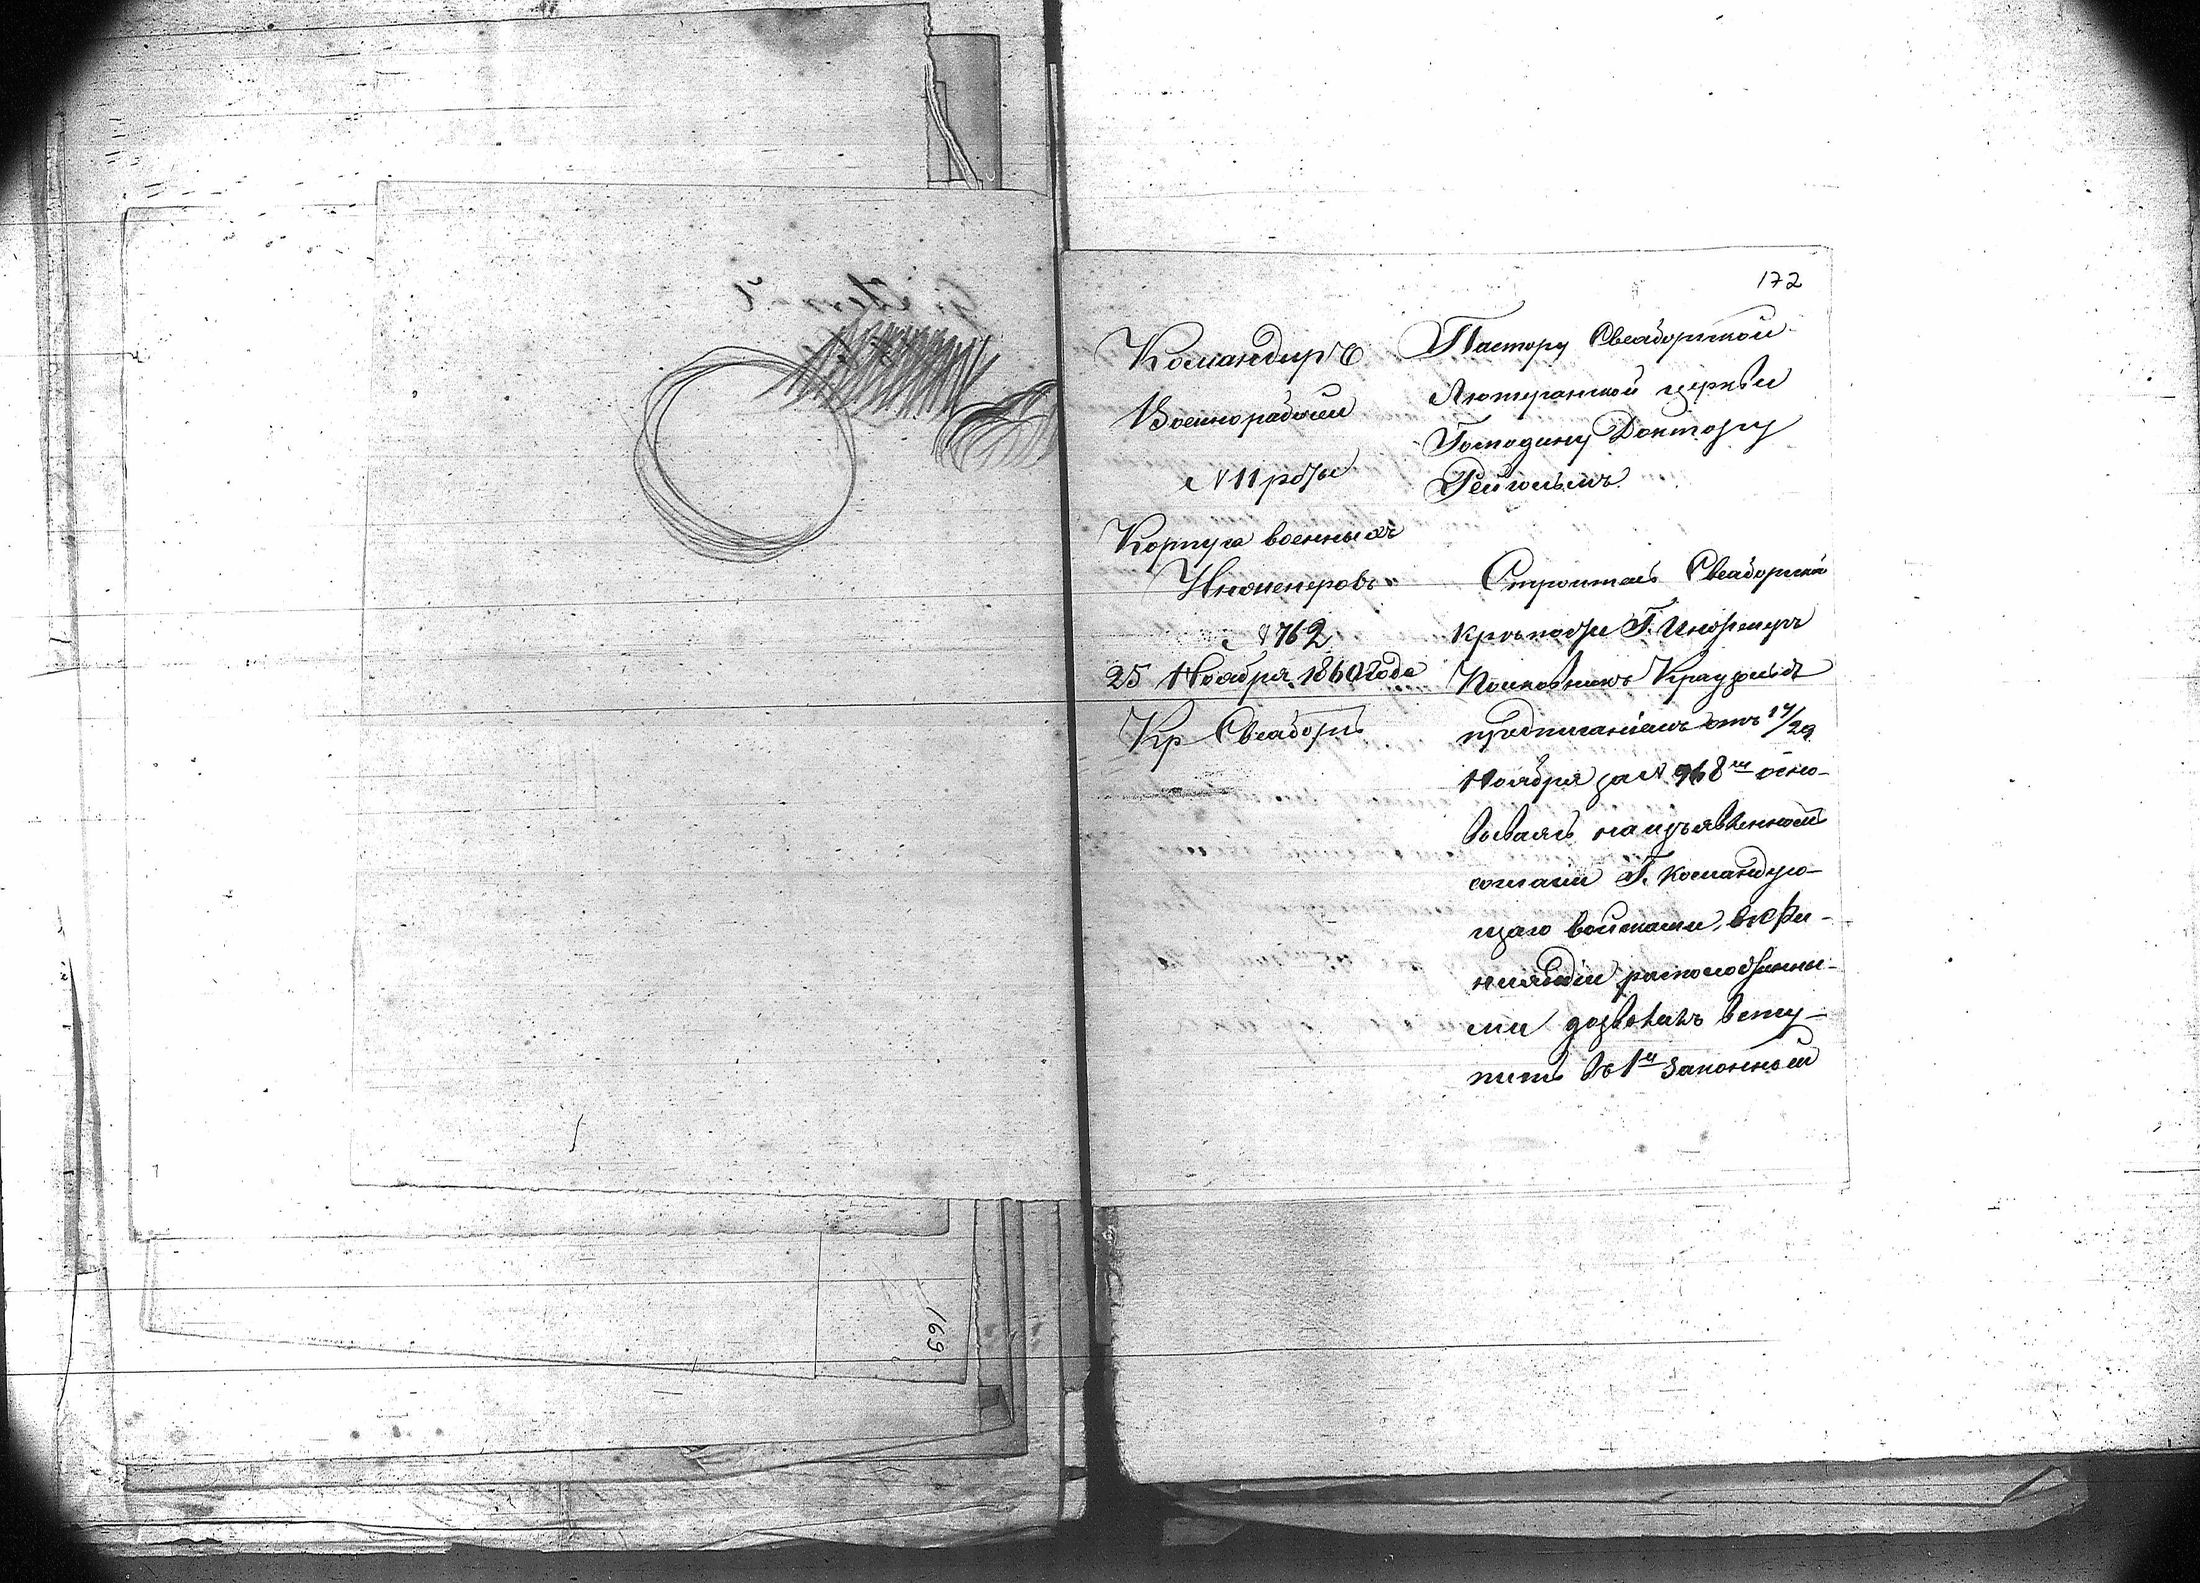 172
Командиръ
Военнорабочей
№ 11 роты
Корпуса военныхъ
Инженеровъ
№ 762
25 Ноября 1860 года
Кр Свеаборгъ
Пастору Свеаборгской
Лютеранской церкви
Господину Доктору
Строитель Свеаборгской
Крѣпости Г. Инженеръ
Полковникъ
предписаніемъ отъ 17/29
Ноября за № 968ш осно-
вываясь на изъявленномъ
согласіи Г. Командую-
щаго войсками, въ Фи-
нляндіи расположенны-
ми дозволилъ всту-
пить въ 1й законный
169